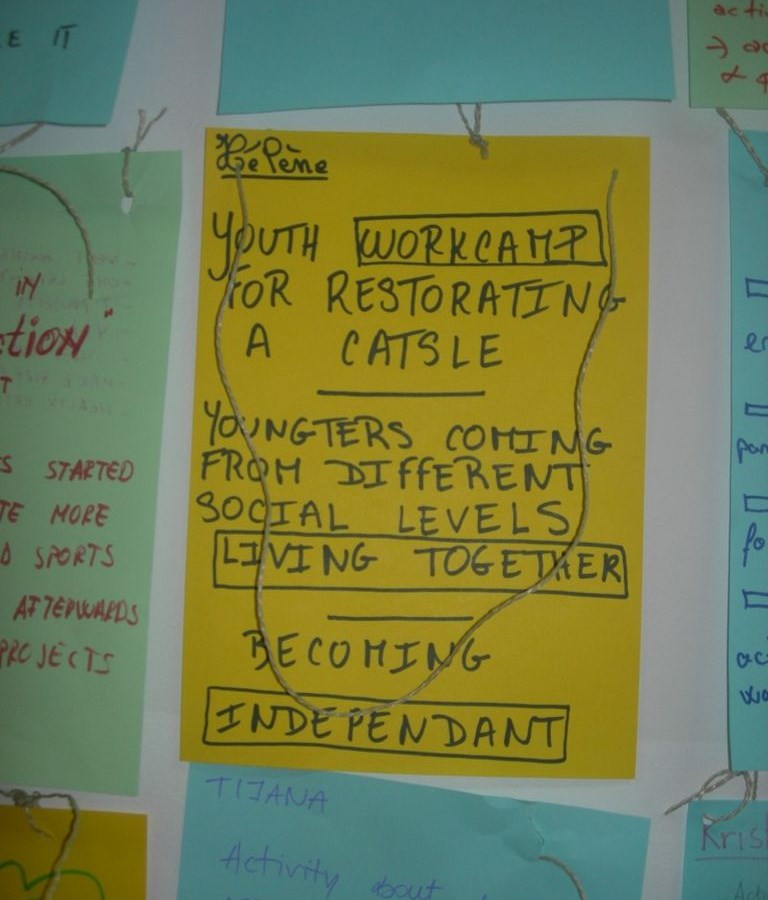 IT
acti
Hélène
YOUTH WORKCAMP
FOR RESTORATING
A CATSLE
YOUNGTERS COMING
FROM DIFFERENT
SOCIAL LEVELS
LIVING TOGETHER
BECOMING
INDEPENDANT
IN
ction"
T
S STARTED
TE MORE
D SPORTS
AFTERWARDS
PROJECTS
er
par
fo
ac
TIJANA
Activity about
Krist